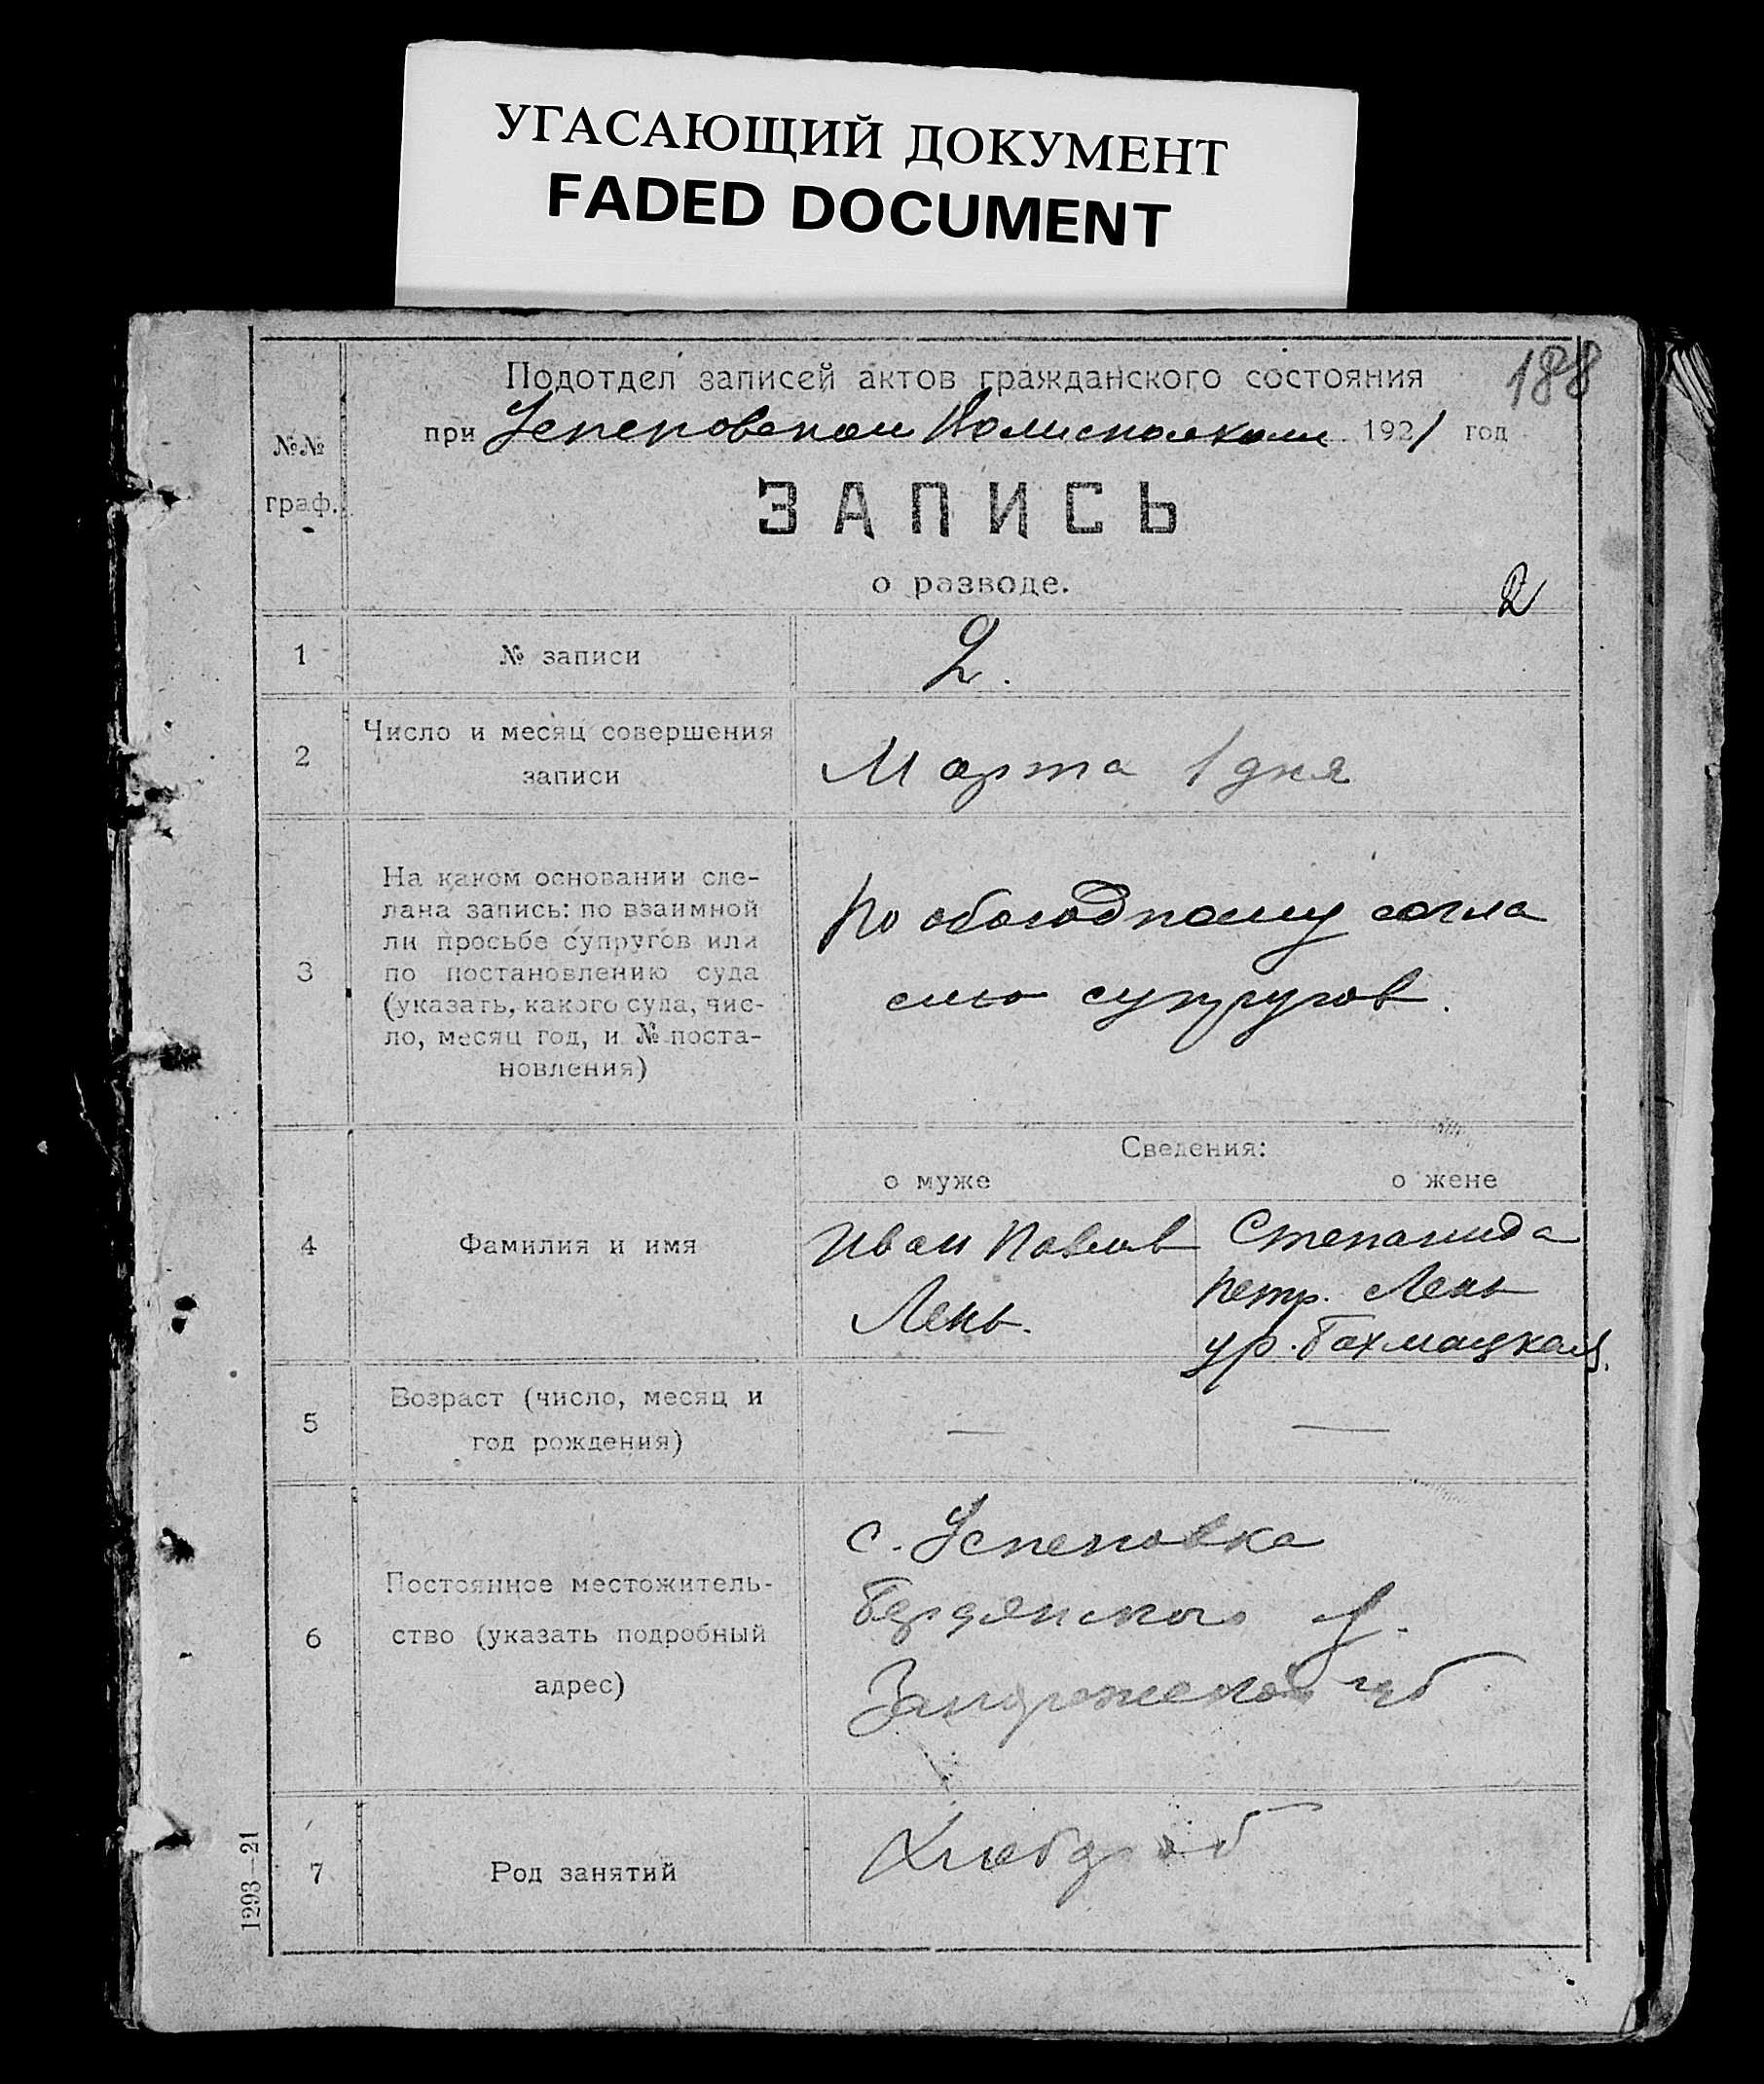 УГАСАЮЩИЙ ДОКУМЕНТ
FADED DOCUMENT
188
Подотдел записей актов гражданского состояния
при Успеновском Волисполкоме 1921 год
№№
граф.
ЗАПИСЬ
о разводе.
2
1 № записи 2.
2 Число и месяц совершения
записи Марта 1 дня
3 На каком основании сде-
лана запись: по взаимной
ли просьбе супругов или
по постановлению суда
(указать, какого суда, чис-
ло, месяц год, и № поста-
новления)
По обоюдному согла
сию супругов.
Сведения:
о муже о жене
4 Фамилия и имя
Иван Павлов
Лень.
Степанида
Петр. Лень
ур. Бахмацкая.
5 Возраст (число, месяц и
год рождения) — —
6 Постоянное местожитель-
ство (указать подробный
адрес)
с. Успеновка
Бердянского у.
Запорожской губ
7 Род занятий Хлебороб
1293—21